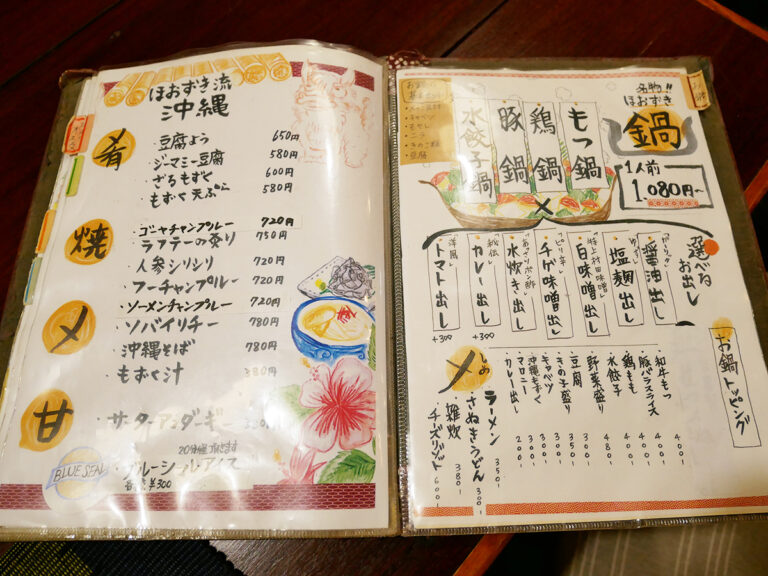 ほおずき流
沖縄
肴
豆腐よう 650円
ジーマミー豆腐 580円
ざるもずく 600円
もずく天ぷら 580円
焼
ゴーヤチャンプルー 720円
ラフテーの炙り 750円
人参シリシリ 720円
フーチャンプルー 720円
ソーメンチャンプルー 720円
ソパイリチー 780円
〆
沖縄そば 780円
もずく汁
甘
サーターアンダーギー
20分程頂きます
ブルーシールアイス
各種 ¥300
BLUE SEAL
名物!!
ほおずき
鍋
1人前
1,080円〜
もつ鍋
鶏鍋
豚鍋
水餃子鍋
×
選べる
お出し
醤油出し
塩麹出し
白味噌出し
チゲ味噌出し
ピリ辛
水炊き出し
あっさりポン酢
カレー出し +300
秘伝
トマト出し +300
洋風
お鍋トッピング
和牛もつ
豚バラスライス
鶏もも
水餃子
野菜盛り
豆腐
きの子盛り
キャベツ
沖縄もずく
マロニー
カレー出し
〆
しめ
ラーメン 350-
さぬきうどん 300-
雑炊 380-
チーズリゾット 600-